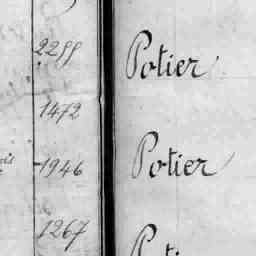 2255 Potier
1472
1946 Potier
1267